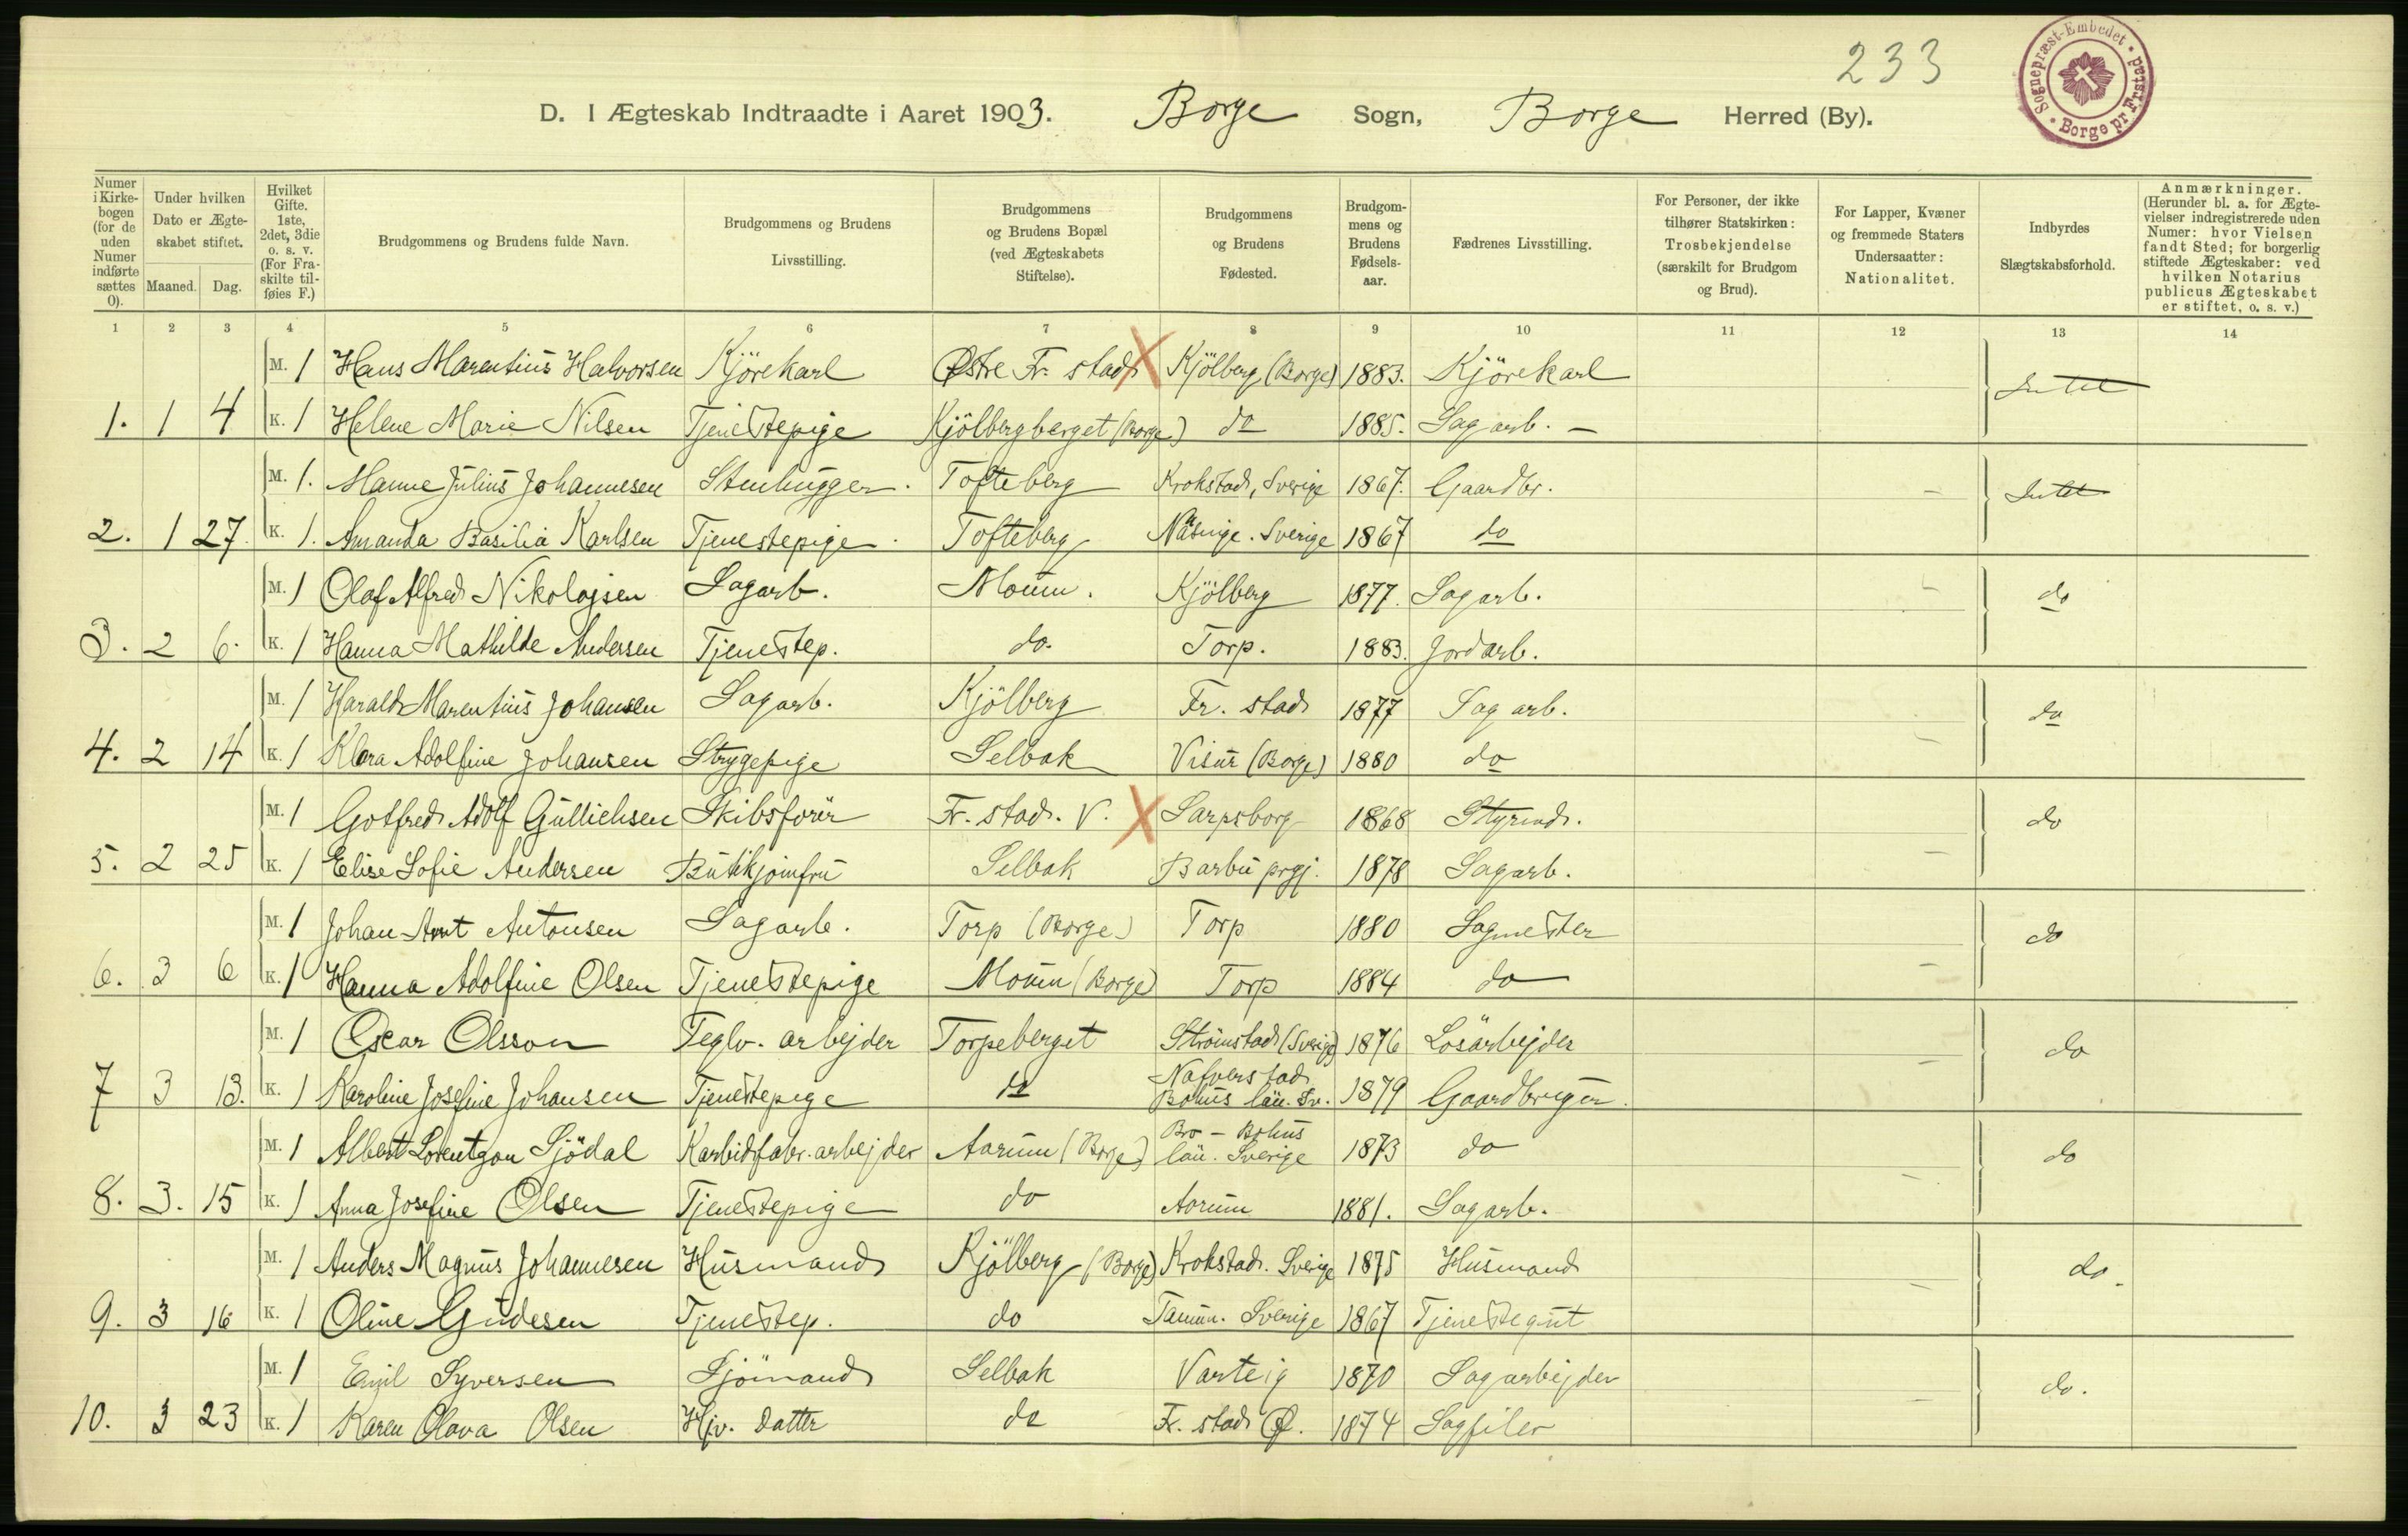 233
Sognepræst-Embedet • Borge pr Frstad •
D. I Ægteskab Indtraadte i Aaret 1903. Borge Sogn, Borge Herred (By).
Numer i Kirkebogen (for de uden Numer indførte sættes 0).
Under hvilken Dato er Ægteskabet stiftet.
Maaned. Dag.
Hvilket Gifte. 1ste, 2det, 3die o. s. v. (For Fraskilte tilføies F.)
Brudgommens og Brudens fulde Navn.
Brudgommens og Brudens Livsstilling.
Brudgommens og Brudens Bopæl (ved Ægteskabets Stiftelse).
Brudgommens og Brudens Fødested.
Brudgommens og Brudens Fødselsaar.
Fædrenes Livsstilling.
For Personer, der ikke tilhører Statskirken: Trosbekjendelse (særskilt for Brudgom og Brud).
For Lapper, Kvæner og fremmede Staters Undersaatter: Nationalitet.
Indbyrdes Slægtskabsforhold.
Anmærkninger. (Herunder bl. a. for Ægtevielser indregistrerede uden Numer: hvor Vielsen fandt Sted; for borgerlig stiftede Ægteskaber: ved hvilken Notarius publicus Ægteskabet er stiftet, o. s. v.)
1 2 3 4 5 6 7 8 9 10 11 12 13 14
M. 1 Hans Marentius Halvorsen Kjörekarl Østre Fr. stad Kjölberg (Borge) 1883. Kjörekarl Intet
1. 1 4 K. 1 Helene Marie Nilsen Tjenestepige Kjölbergberget (Borge) do 1885. Sagarb. —
M. 1. Manne Julius Johannesen Stenhugger. Tofteberg Krokstad, Sverige 1867. Gaardbr. — Intet
2. 1 27. K. 1. Amanda Basilia Karlsen Tjenestepige. Tofteberg Sverige 1867 do
M. 1 Olaf Alfred Nikolajsen Sagarb. Moum. Kjölberg 1877. Sagarb. — do
3. 2 6. K. 1 Hanna Mathilde Andersen Tjenestep. do. Torp. 1883. Jordarb.
M. 1 Harald Marentius Johansen Sagarb. Kjölberg Fr. stad 1877 Sagarb. do
4. 2 14 K. 1 Klara Adolfine Johansen Strygepige Selbak Visur (Borge) 1880 do —
M. 1 Gotfred Adolf Gullichsen Skibsförer Fr. stad. V. Sarpsborg 1868 Styrmd. do
5. 2 25 K. 1 Elise Sofie Andersen Butikjomfru Selbak Barbu prgj. 1878 Sagarb. —
M. 1 Johan Arnt Antonsen Sagarb. Torp (Borge) Torp 1880 Sagmester do
6. 3 6 K. 1 Hanna Adolfine Olsen Tjenestepige Moum (Borge) Torp 1884 do —
M. 1 Oscar Olsson Teglv. arbejder Torpeberget Strömstad (Sverige) 1876 Lösarbejder do
7 3 13. K. 1 Karoline Josefine Johansen Tjenestepige do Nafverstad Bohus län. Sv. 1879 Gaardbruger. —
M. 1 Albert Sjödal Karbidfabr. arbejder Aarum (Borge) Bro - Bohus län. Sverige 1873 do do
8. 3. 15 K. 1 Anna Josefine Olsen Tjenestepige do Aarum 1881. Sagarb. —
M. 1 Anders Magnus Johannesen Husmand Kjölberg (Borge) Krokstad. Sverige 1875 Husmand do.
9. 3 16 K. 1 Oline Gudesen Tjenestep. do Tanum. Sverige 1867 Tjenestegut —
M. 1 Emil Syversen Sjömand Selbak Varteig 1870 Sagarbejder do.
10. 3 23 K. 1 Karen Olava Olsen Hjv. datter do Fr. stad Ø. 1874 Sagfiler —